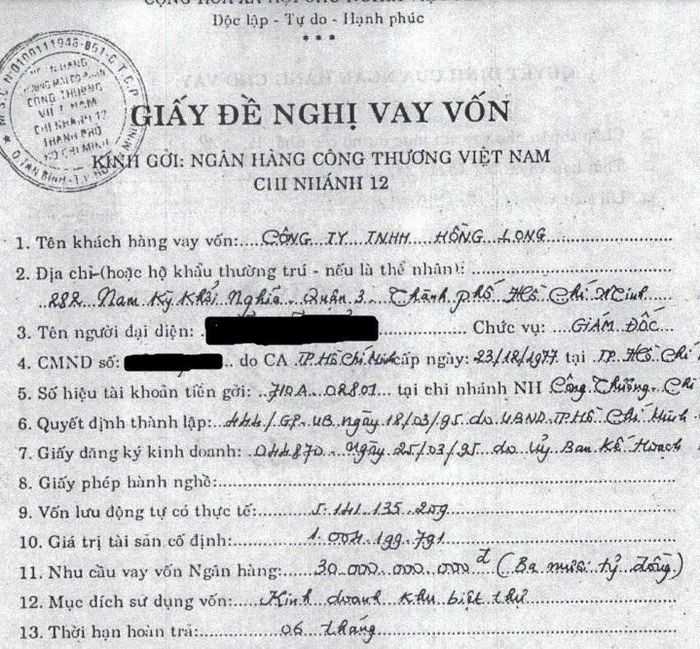 Độc lập - Tự do - Hạnh phúc
***
GIẤY ĐỀ NGHỊ VAY VỐN
KÍNH GỞI: NGÂN HÀNG CÔNG THƯƠNG VIỆT NAM
CHI NHÁNH 12
CÔNG THƯƠNG
VIỆT NAM
CHI NHÁNH 12
THÀNH PHỐ
HỒ CHÍ MINH
1. Tên khách hàng vay vốn: CÔNG TY TNHH HỒNG LONG
2. Địa chỉ (hoặc hộ khẩu thường trú - nếu là thể nhân):
282 Nam Kỳ Khởi Nghĩa - Quận 3 - Thành phố Hồ Chí Minh
3. Tên người đại diện: Chức vụ: GIÁM ĐỐC
4. CMND số: do CA TP. Hồ Chí Minh cấp ngày: 23/12/1977 tại TP. Hồ Chí
5. Số hiệu tài khoản tiền gởi: 710A.02801 tại chi nhánh NH Công Thương - Chi
6. Quyết định thành lập: 444/GP-UB ngày 18/03/95 do UBND TP. Hồ Chí Minh
7. Giấy đăng ký kinh doanh: 044870 - Ngày 25/03/95 do Uỷ Ban Kế Hoạch
8. Giấy phép hành nghề:
9. Vốn lưu động tự có thực tế: 5.141.135.209
10. Giá trị tài sản cố định: 1.004.199.791
11. Nhu cầu vay vốn Ngân hàng: 30.000.000.000 đ (Ba mươi tỷ đồng)
12. Mục đích sử dụng vốn: Kinh doanh khu biệt thự
13. Thời hạn hoàn trả: 06 tháng